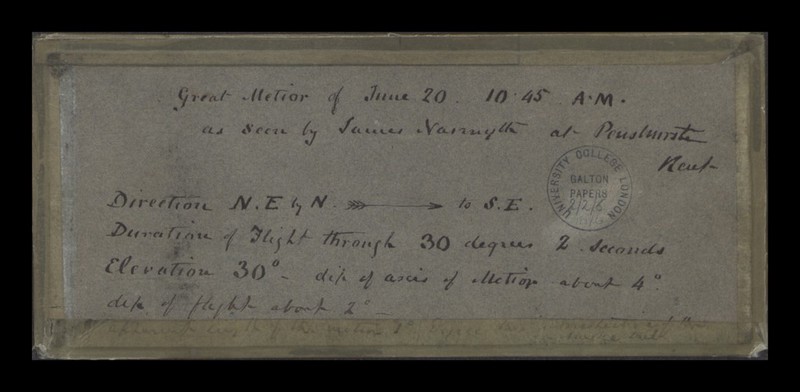 Great Metior of June 20. 10.45 A.M.
as seen by James Nasmyth at Penshurst
Kent
UNIVERSITY COLLEGE LONDON
GALTON
PAPERS
2/2/5
Direction N.E by N. to S.E.
Duration of Flight through 30 degrees 2 seconds
Elevation 30° - dip of axis of Metior about 4°.
dip of flight about 2° -
apparent length of the metior 2°